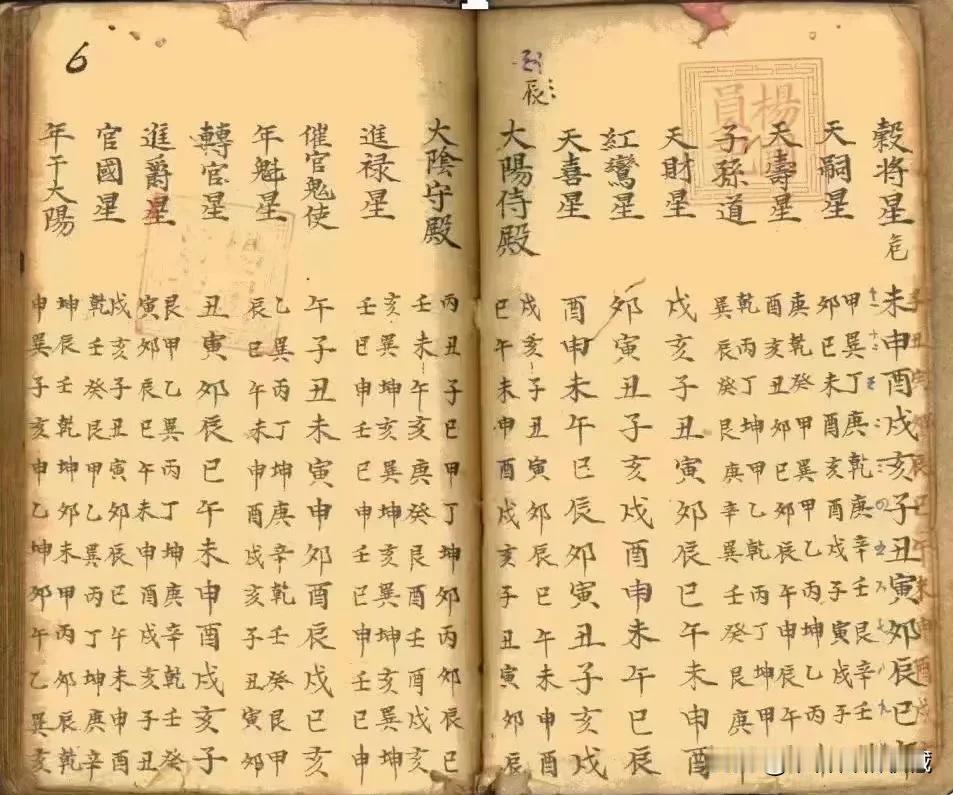 子丑寅卯辰巳午未申酉戌
穀將星 危 未申酉戌亥子丑寅卯辰巳午
天嗣星 甲巽丁庚乾庚辛壬艮辛壬
卯巳未酉亥酉戌子寅戌子
天壽星 庚乾癸甲巽甲乙丙坤乙丙
酉亥丑卯巳卯辰午申辰午
子孫道 乾丙丁坤甲乙乾丙丁坤甲
巽辰癸艮庚辛巽壬癸艮庚
天財星 戌亥子丑寅卯辰巳午未申酉
紅鸞星 卯寅丑子亥戌酉申未午巳辰
天喜星 酉申未午巳辰卯寅丑子亥戌
辰
大陽侍殿 戌亥子丑寅卯辰巳午未申酉
巳午未申酉戌亥子丑寅卯辰
楊
員
大陰守殿 丙丑子巳甲丁坤卯丙卯辰巳
壬未午亥庚癸艮酉壬酉戌亥
進禄星 亥巽坤亥巽坤亥巽坤亥巽坤
壬巳申壬巳申壬巳申壬巳申
催官鬼使 午子丑未寅申卯酉辰戌巳亥
年魁星 乙巽丙丁坤庚辛乾壬癸艮甲
辰巳午未申酉戌亥子丑寅卯
轉官星 丑寅卯辰巳午未申酉戌亥子
進爵星 艮甲乙巽丙丁坤庚辛乾壬癸
寅卯辰巳午未申酉戌亥子丑
官國星 戌亥子丑寅卯辰巳午未申酉
乾壬癸艮甲乙巽丙丁坤庚辛
年干大陽 坤辰壬乾坤卯未甲丙卯辰乾
申巽子亥申乙坤卯午乙巽亥
6